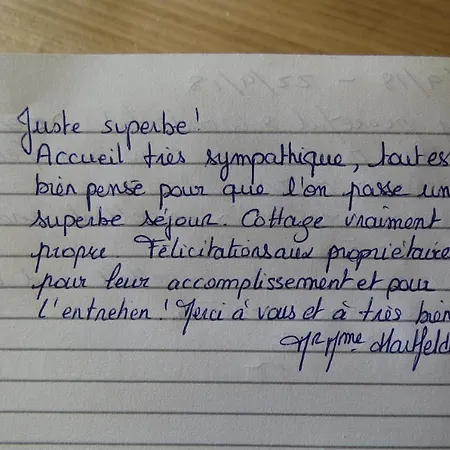 Juste superbe !
Accueil très sympathique, tout es
bien pensé pour que l'on passe un
superbe séjour. Cottage vraiment
propre Félicitations aux propriétaire
pour leur accomplissement et pour
l'entretien ! Merci à vous et à très bien
Mr Mme